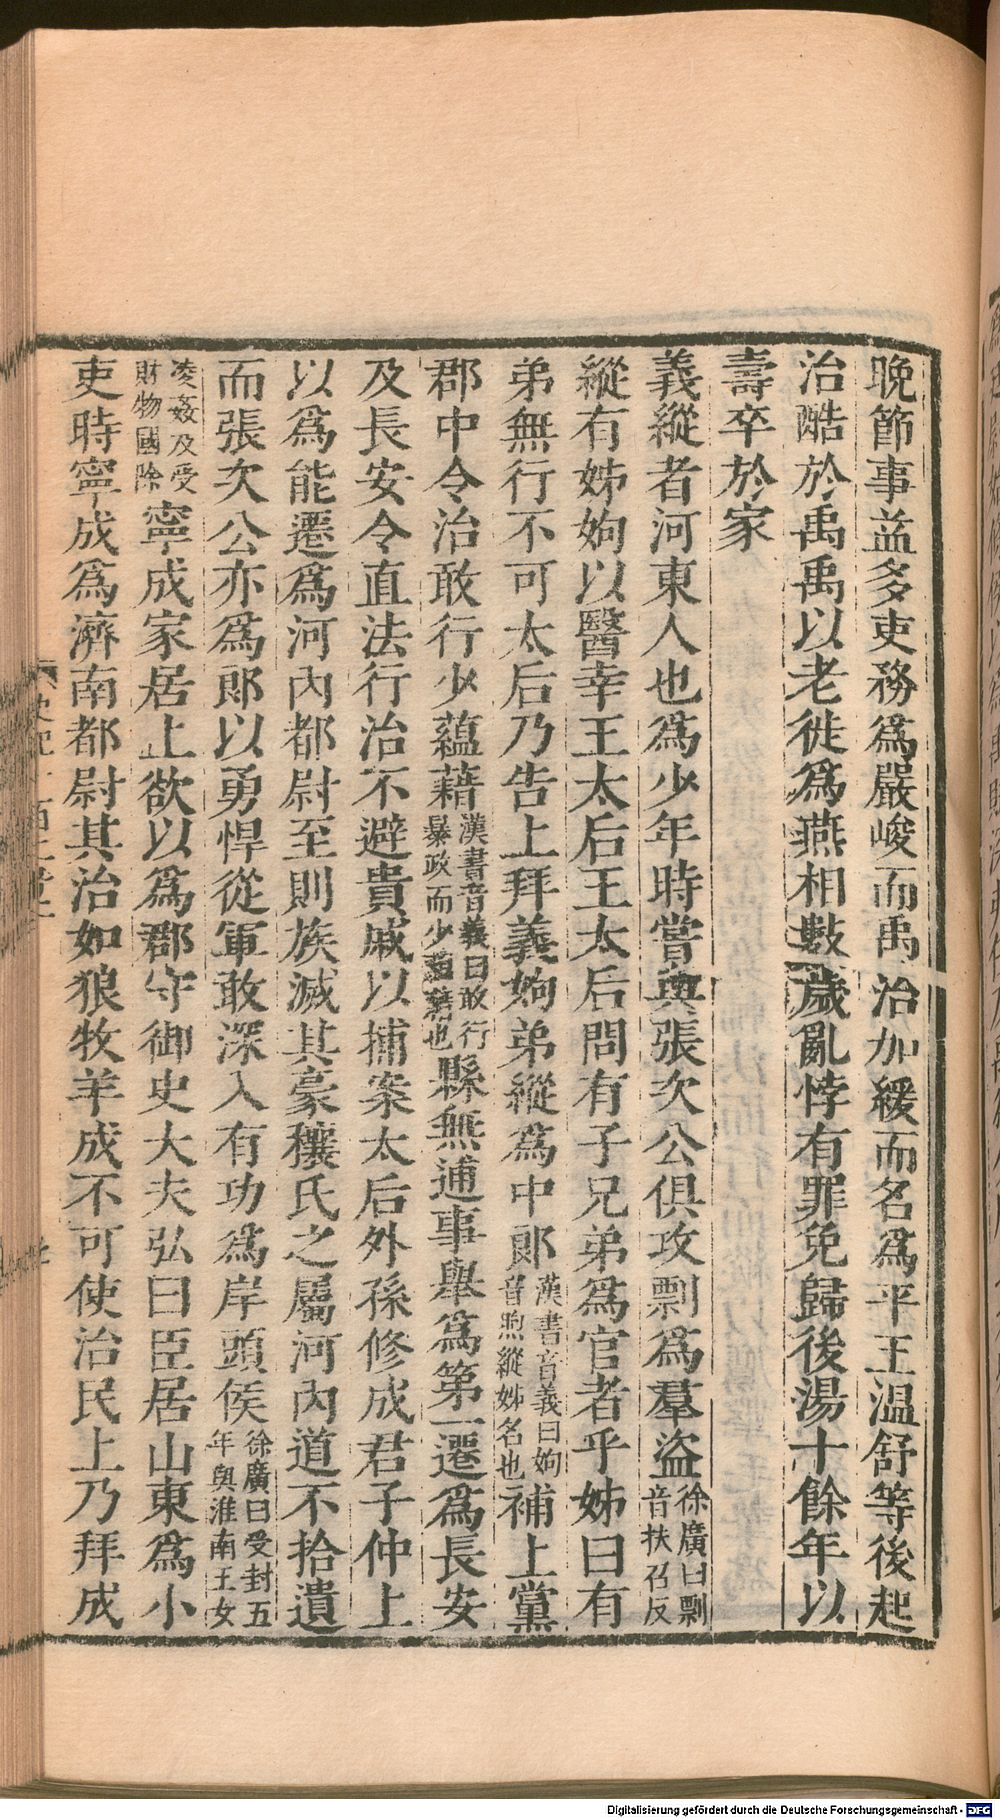 晩節事益多吏務爲嚴峻而禹治加緩而名爲平王温舒等後起
治酷於禹禹以老徙爲燕相數歲亂悖有罪免歸後湯十餘年以
壽卒於家
義縱者河東人也爲少年時嘗與張次公俱攻剽爲羣盜徐廣曰剽音扶召反
縱有姊姁以醫幸王太后王太后問有子兄弟爲官者乎姊曰有
弟無行不可太后乃告上拜義姁弟縱爲中郎漢書音義曰姁音煦縱姊名也補上黨
郡中令治敢行少蘊藉漢書音義曰敢行暴政而少蘊藉也縣無逋事舉爲第一遷爲長安
及長安令直法行治不避貴戚以捕案太后外孫修成君子仲上
以爲能遷爲河內都尉至則族滅其豪穰氏之屬河內道不拾遺
而張次公亦爲郎以勇悍從軍敢深入有功爲岸頭侯徐廣曰受封五年與淮南王女
凌姦及受財物國除寧成家居上欲以爲郡守御史大夫弘曰臣居山東爲小
吏時寧成爲濟南都尉其治如狼牧羊成不可使治民上乃拜成
Digitalisierung gefördert durch die Deutsche Forschungsgemeinschaft - DFG